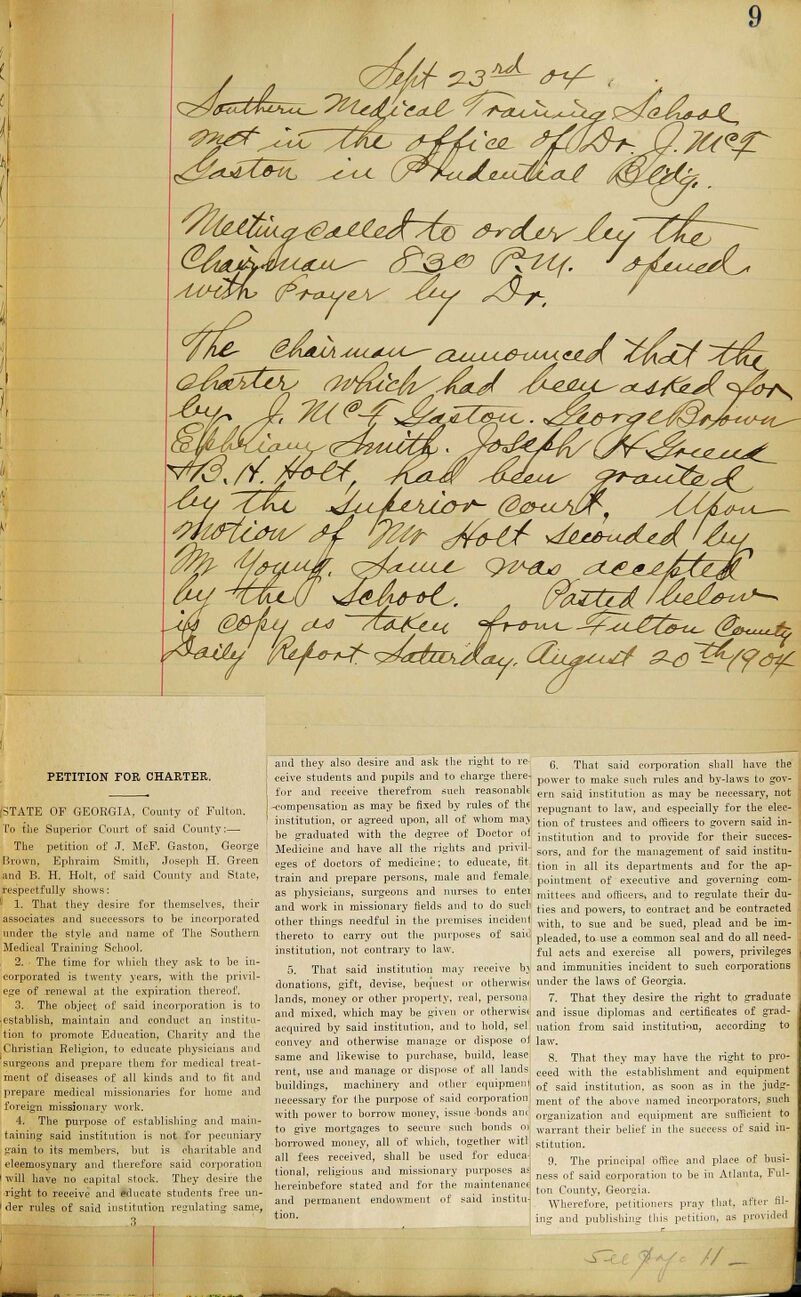 9
Sept 23rd 04.
Southern Medical Training School
met in the office of Dr. J. McF
Gaston in Prudential Bldg.
Meeting called to order by the
Chairman 8:30 P.M. opened
with Prayer by Dr.
The chairman announced that the
charter which had been asked for
by J. McF Gaston. George Brown
Ephriam Smith. Joseph H Green
B. H. Holt, had been granted
by the Superior Court, Upon
motion of Mr Holt seconded by
Mr Young. Same was accepted
by the School. Pasted below
is copy as taken from Fulton County
Daily Report Saturday. August 20th 1904
PETITION FOR CHARTER.
STATE OF GEORGIA, County of Fulton.
To the Superior Court of said County:—
The petition of J. McF. Gaston, George
Brown, Ephraim Smith, Joseph H. Green
and B. H. Holt, of said County and State,
respectfully shows:
1. That they desire for themselves, their
associates and successors to be incorporated
under the style and name of The Southern
Medical Training School.
2. The time for which they ask to be in-
corporated is twenty years, with the privil-
ege of renewal at the expiration thereof.
3. The object of said incorporation is to
establish, maintain and conduct an institu-
tion to promote Education, Charity and the
Christian Religion, to educate physicians and
surgeons and prepare them for medical treat-
ment of diseases of all kinds and to fit and
prepare medical missionaries for home and
foreign missionary work.
4. The purpose of establishing and main-
taining said institution is not for pecuniary
gain to its members, but is charitable and
eleemosynary and therefore said corporation
will have no capital stock. They desire the
right to receive and educate students free un-
der rules of said institution regulating same,
3
and they also desire and ask the right to re-
ceive students and pupils and to charge there-
for and receive therefrom such reasonable
compensation as may be fixed by rules of the
institution, or agreed upon, all of whom may
be graduated with the degree of Doctor of
Medicine and have all the rights and privil-
eges of doctors of medicine; to educate, fit
train and prepare persons, male and female,
as physicians, surgeons and nurses to enter
and work in missionary fields and to do such
other things needful in the premises incident
thereto to carry out the purposes of said
institution, not contrary to law.
5. That said institution may receive by
donations, gift, devise, bequest or otherwise
lands, money or other property, real, persona
and mixed, which may be given or otherwise
acquired by said institution, and to hold, sel
convey and otherwise manage or dispose of
same and likewise to purchase, build, lease
rent, use and manage or dispose of all lands
buildings, machinery and other equipment
necessary for the purpose of said corporation
with power to borrow money, issue bonds and
to give mortgages to secure such bonds or
borrowed money, all of which, together with
all fees received, shall be used for educa-
tional, religious and missionary purposes as
hereinbefore stated and for the maintenance
and permanent endowment of said institu-
tion.
6. That said corporation shall have the
power to make such rules and by-laws to gov-
ern said institution as may be necessary, not
repugnant to law, and especially for the elec-
tion of trustees and officers to govern said in-
institution and to provide for their succes-
sors, and for the management of said institu-
tion in all its departments and for the ap-
pointment of executive and governing com-
mittees and officers, and to regulate their du-
ties and powers, to contract and be contracted
with, to sue and be sued, plead and be im-
pleaded, to use a common seal and do all need-
ful acts and exercise all powers, privileges
and immunities incident to such corporations
under the laws of Georgia.
7. That they desire the right to graduate
and issue diplomas and certificates of grad-
uation from said institution, according to
law.
8. That they may have the right to pro-
ceed with the establishment and equipment
of said institution, as soon as in the judg-
ment of the above named incorporators, such
organization and equipment are sufficient to
warrant their belief in the success of said in-
stitution.
9. The principal office and place of busi-
ness of said corporation to be in Atlanta, Ful-
ton County, Georgia.
Wherefore, petitioners pray that, after fil-
ing and publishing this petition, as provided
See page 11 —